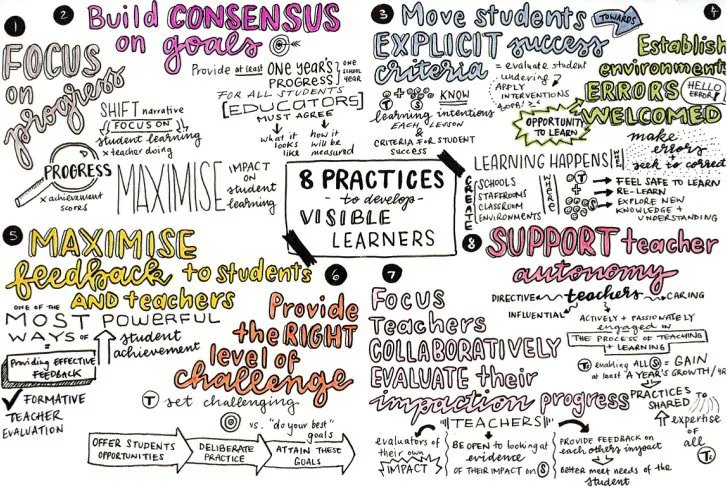 1
FOCUS
on
progress
SHIFT narrative
FOCUS ON
student learning
x teacher doing
PROGRESS
x achievement
scores
MAXIMISE
IMPACT
on
student
learning
2
Build CONSENSUS
on goals
Provide at least ONE YEAR'S
PROGRESS
one
school
year
FOR ALL STUDENTS
[EDUCATORS]
MUST AGREE
what it
looks
like
how it
will be
measured
8 PRACTICES
- to develop -
VISIBLE
LEARNERS
3
Move students TOWARDS
EXPLICIT success
criteria
= evaluate student
APPLY
INTERVENTIONS
T + S KNOW
learning intentions
EACH LESSON
&
CRITERIA FOR STUDENT
success
4
Establish
environment
ERRORS
HELLO
ERROR!
WELCOMED
OPPORTUNITY
TO LEARN
make
errors
seek to correct
LEARNING HAPPENS
CREATE
SCHOOLS
STAFFROOMS
CLASSROOM
ENVIRONMENTS
WHERE
T
+
S
FEEL SAFE TO LEARN
RE-LEARN
EXPLORE NEW
KNOWLEDGE +
UNDERSTANDING
5
MAXIMISE
feedback to students
AND teachers
ONE OF THE
MOST POWERFUL
WAYS OF =
student
achievement
Providing EFFECTIVE
FEEDBACK
FORMATIVE
TEACHER
EVALUATION
6
Provide
the RIGHT
level of
challenge
T set challenging
vs. "do your best"
goals
OFFER STUDENTS
OPPORTUNITIES
DELIBERATE
PRACTICE
ATTAIN THESE
GOALS
7
FOCUS
Teachers
COLLABORATIVELY
EVALUATE their
impaction progress
TEACHERS
evaluators of
their own
IMPACT
BE OPEN to looking at
evidence
OF THEIR IMPACT on S
PROVIDE FEEDBACK on
each others impact
Better meet needs of the
student
8
SUPPORT teacher
autonomy
DIRECTIVE teachers CARING
INFLUENTIAL
ACTIVELY + PASSIONATELY
engaged in
THE PROCESS OF TEACHING
+ LEARNING
T enabling ALL S = GAIN
at least 'A YEAR'S GROWTH/YR
PRACTICES
SHARED
expertise
of
all
Ts